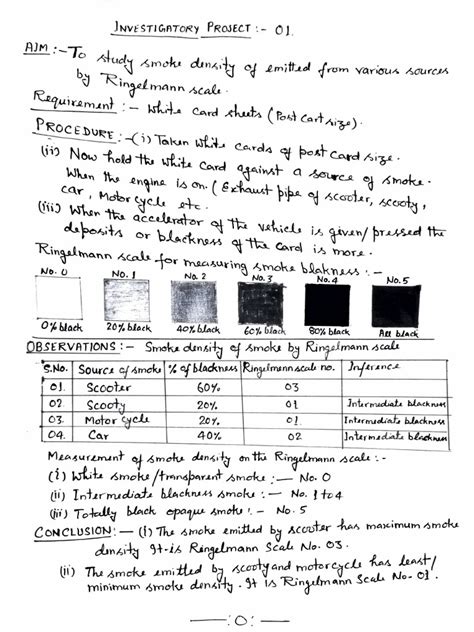 INVESTIGATORY PROJECT :- 01.
AIM :- To study smoke density of emitted from various sources
by Ringelmann scale.
Requirement :- White card sheets (Post Cart size).
PROCEDURE :- (i) Taken white cards of post card size.
(ii) Now hold the white card against a source of smoke.
When the engine is on. (Exhaust pipe of scooter, scooty,
car, Motor cycle etc.
(iii) When the accelerator of the vehicle is given/pressed the
deposits or blackness of the card is more.
Ringelmann scale for measuring smoke blakness :-
No. 0 No. 1 No. 2 No. 3 No. 4 No. 5
0% black 20% black 40% black 60% black 80% black All black
OBSERVATIONS :- Smoke density of smoke by Ringelmann scale
S.No. Source of smoke % of blackness Ringelmann scale no. Inference
01. Scooter 60% 03
02. Scooty 20% 01 Intermediate blackness
03. Motor cycle 20% 01 Intermediate blackness
04. Car 40% 02 Intermediate blackness
Measurement of smoke density on the Ringelmann scale :-
(i) White smoke/transparent smoke :- No. 0
(ii) Intermediate blackness smoke :- No. 1 to 4
(iii) Totally black opaque smoke :- No. 5
CONCLUSION :- (i) The smoke emitted by scooter has maximum smoke
density. It is Ringelmann Scale No. 03.
(ii) The smoke emitted by scooty and motorcycle has least/
minimum smoke density. It is Ringelmann Scale No. 01.
—:0:—